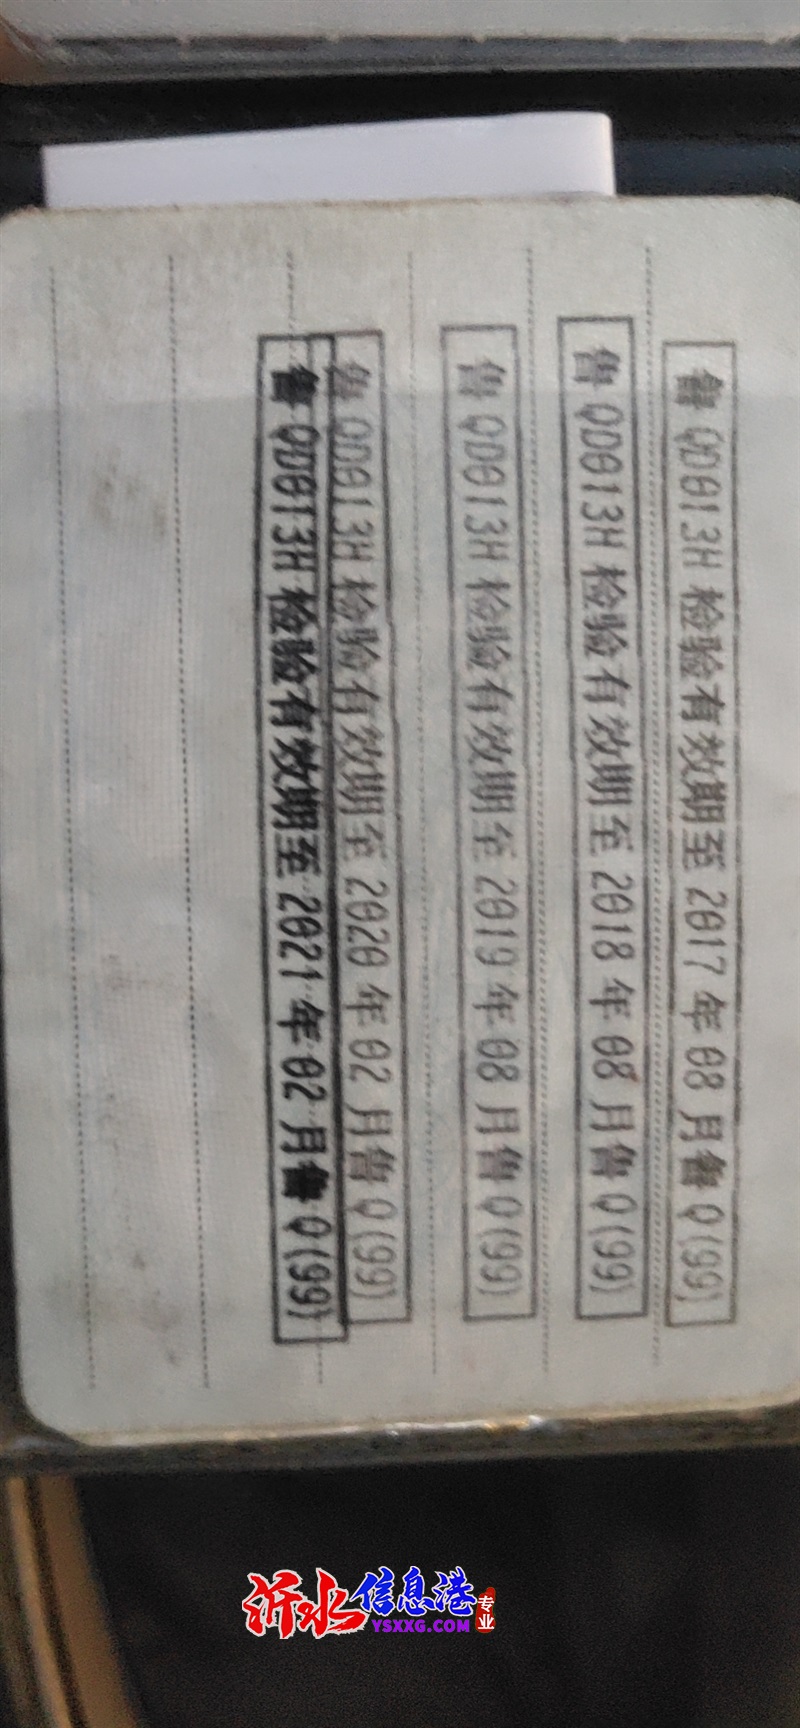 鲁QD013H检验有效期至2017年08月鲁Q(99)
鲁QD013H检验有效期至2018年08月鲁Q(99)
鲁QD013H检验有效期至2019年08月鲁Q(99)
鲁QD013H检验有效期至2020年02月鲁Q(99)
鲁QD013H检验有效期至2021年02月鲁Q(99)
沂水信息港
专业
YSXXG.COM